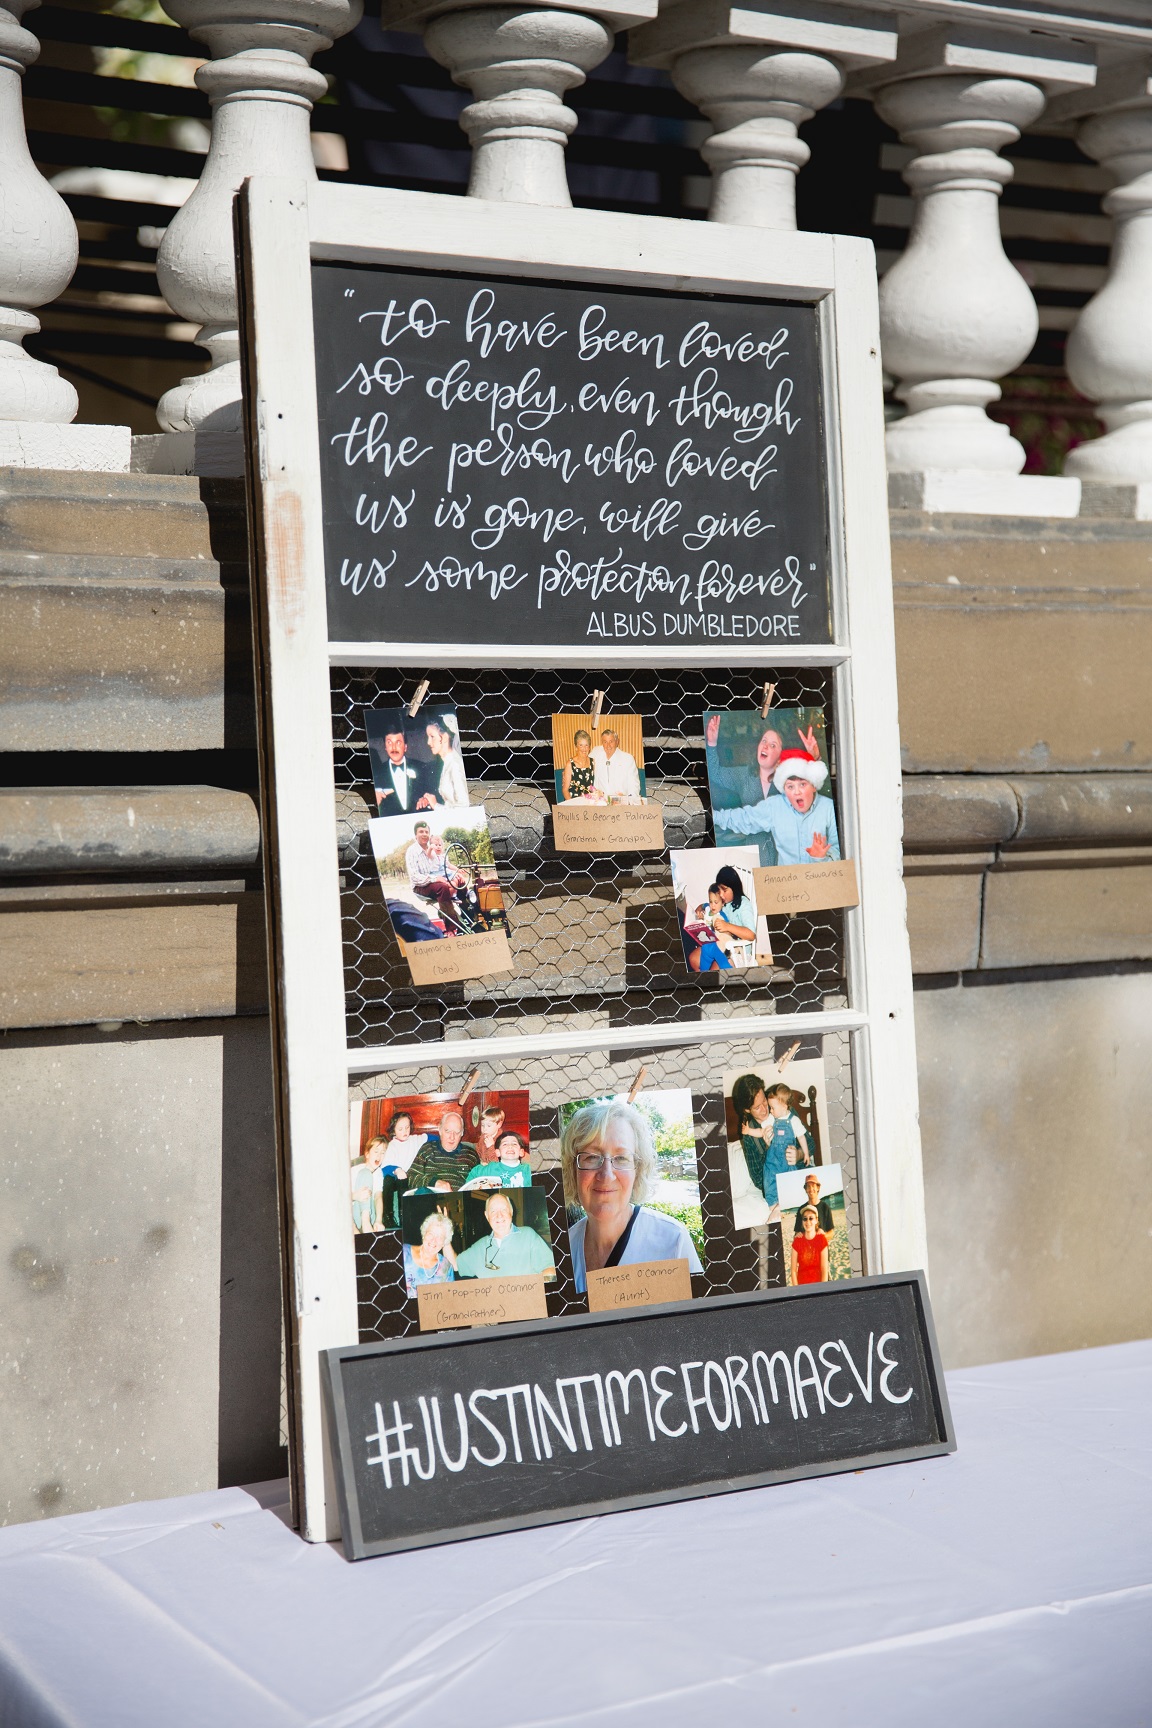 "to have been loved
so deeply, even though
the person who loved
us is gone, will give
us some protection forever"
ALBUS DUMBLEDORE
Phyllis & George Palmer
(Grandma + Grandpa)
Amanda Edwards
(sister)
Raymond Edwards
(Dad)
Jim "Pop-pop" O'Connor
(Grandfather)
Therese O'Connor
(Aunt)
#JUSTINTIMEFORMAEVE